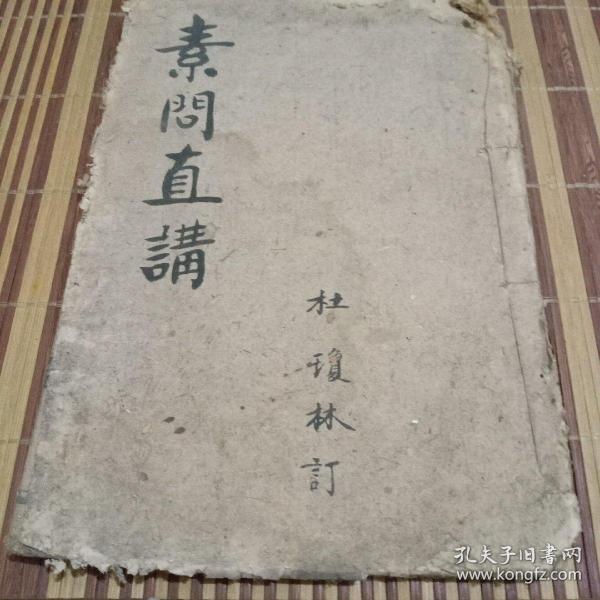 素問直講
杜瓊林訂
孔夫子旧书网
www.kongfz.com